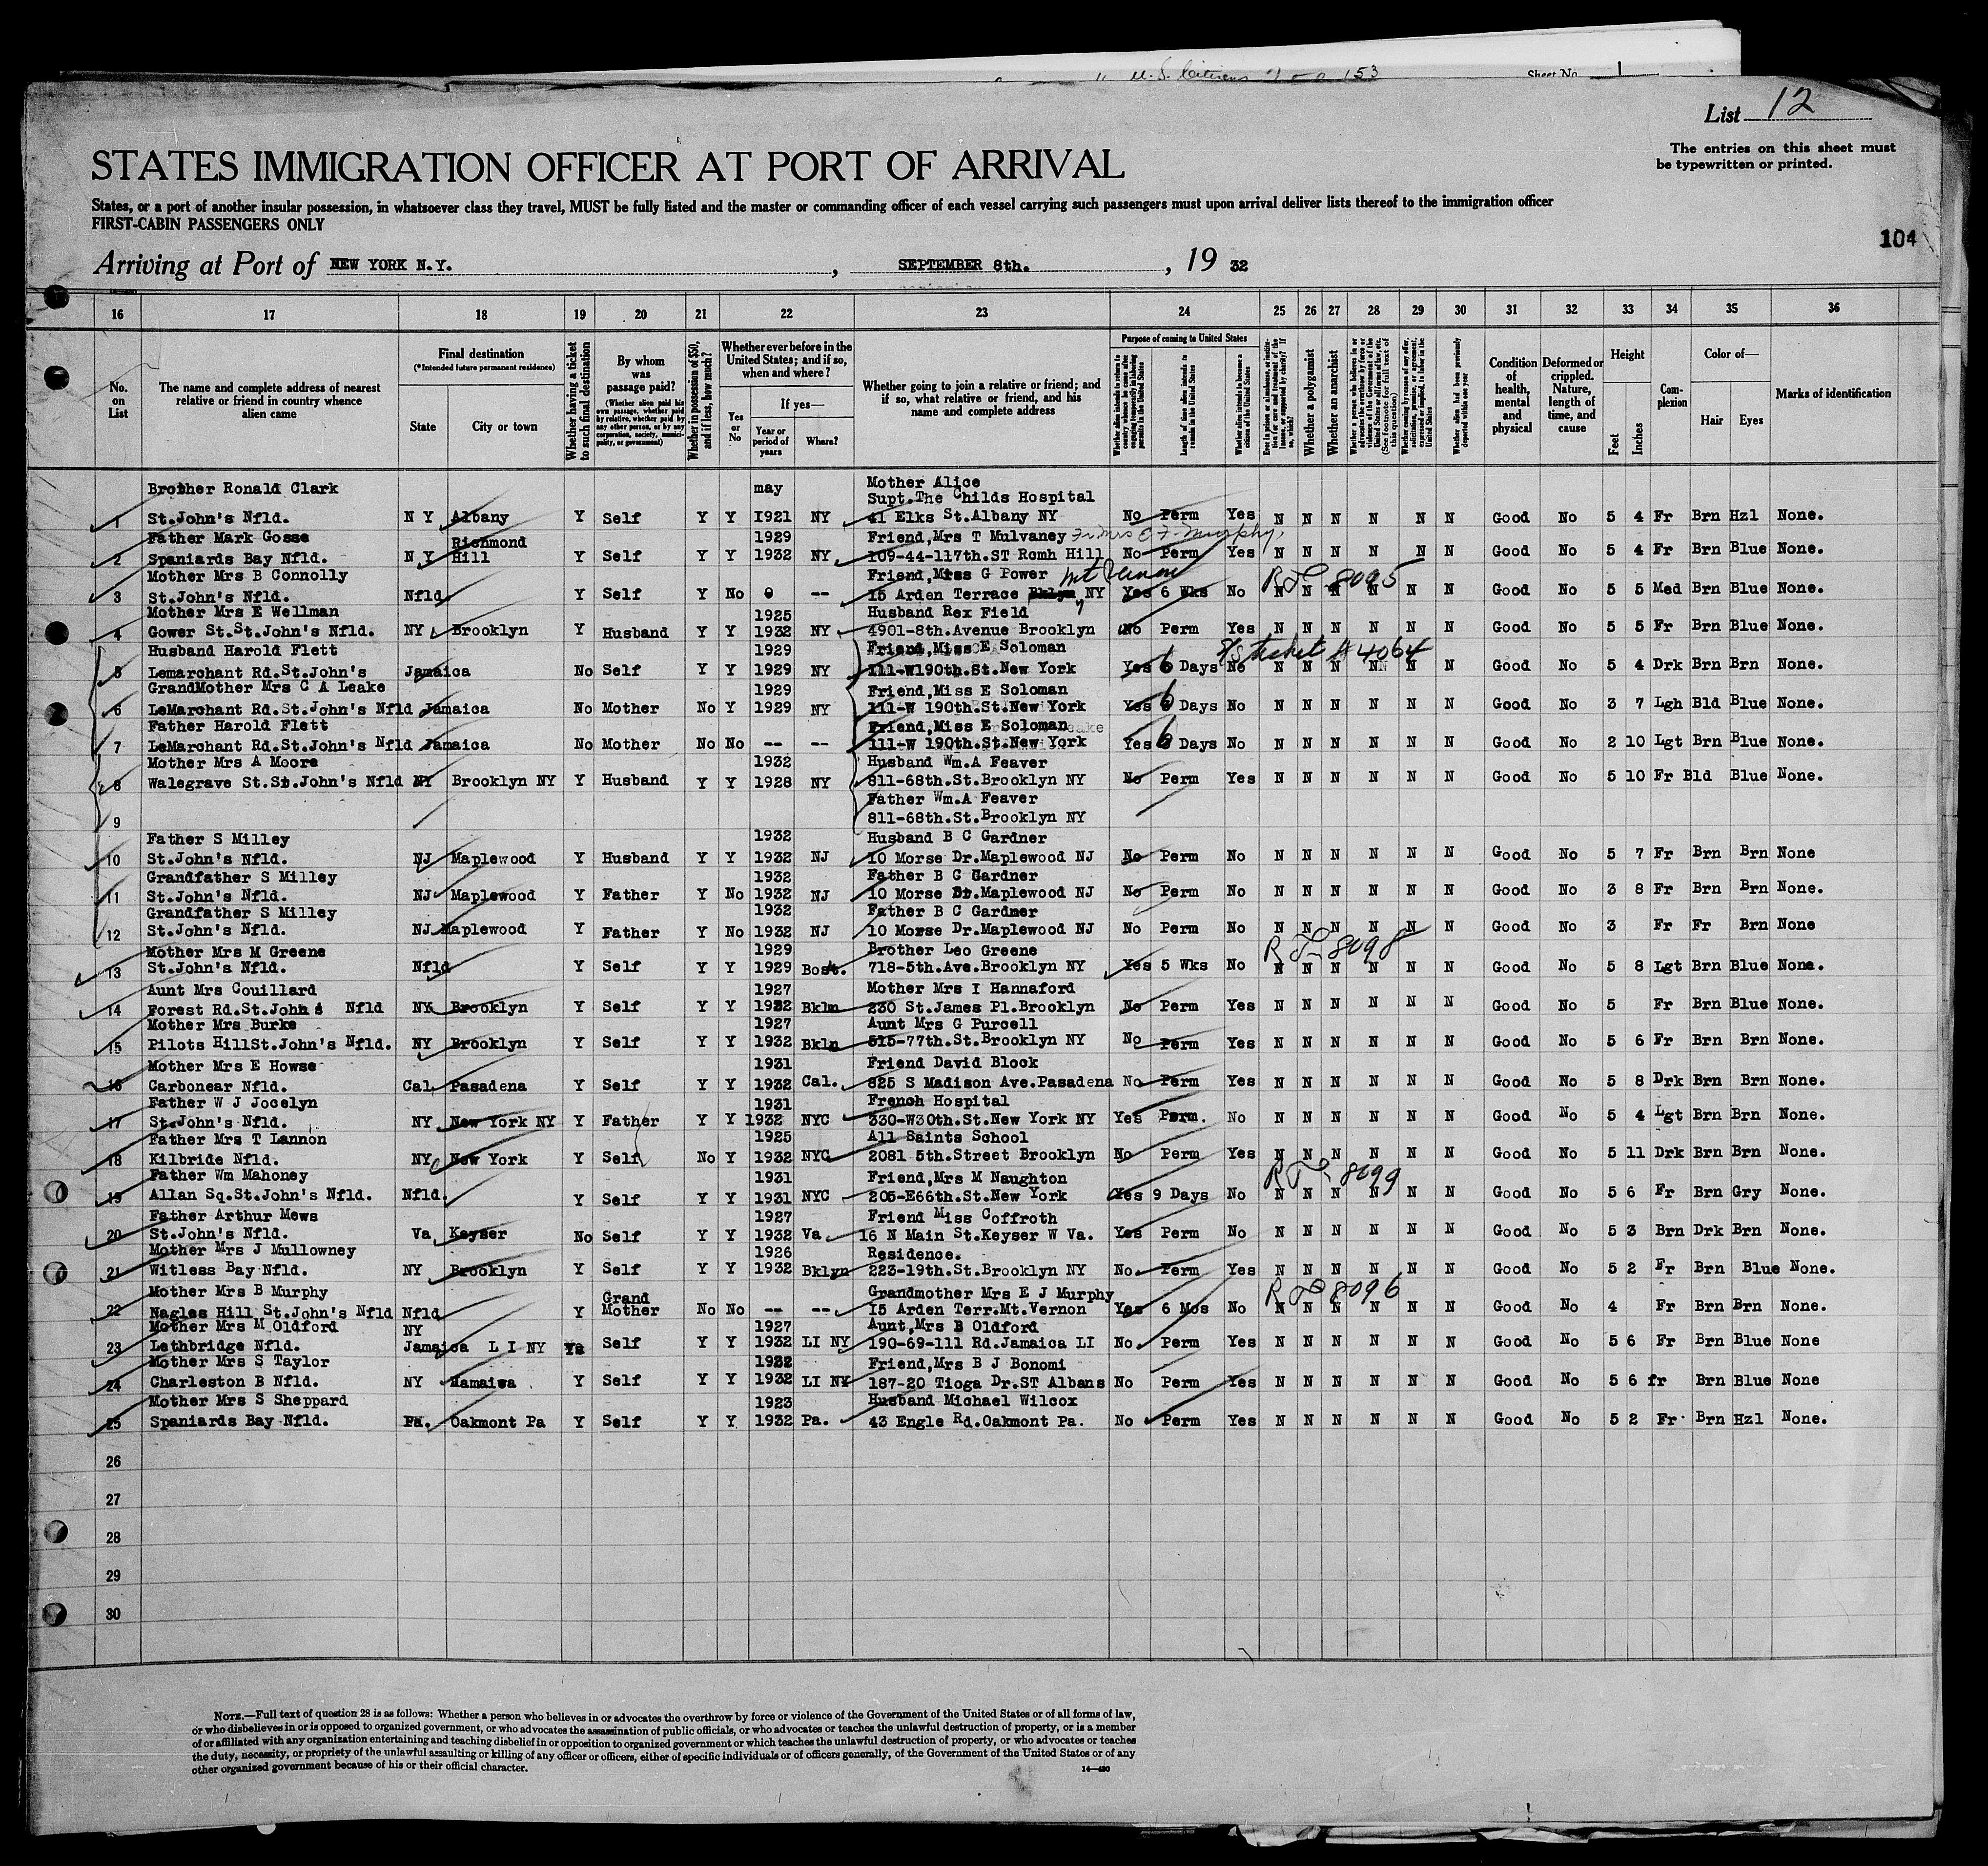 U.S. Citizens
153
Sheet No. 1
List 12
The entries on this sheet must
be typewritten or printed.
STATES IMMIGRATION OFFICER AT PORT OF ARRIVAL
States, or a port of another insular possession, in whatsoever class they travel, MUST be fully listed and the master or commanding officer of each vessel carrying such passengers must upon arrival deliver lists thereof to the immigration officer
FIRST-CABIN PASSENGERS ONLY
104
Arriving at Port of NEW YORK N.Y. , SEPTEMBER 8th. , 19 32
16 17 18 19 20 21 22 23 24 25 26 27 28 29 30 31 32 33 34 35 36
No. on List
The name and complete address of nearest relative or friend in country whence alien came
Final destination
(*Intended future permanent residence)
State
City or town
Whether having a ticket to such final destination
By whom was passage paid?
(Whether alien paid his own passage, whether paid by relative, whether paid by any other person, or by any corporation, society, municipality, or government)
Whether in possession of $50, and if less, how much?
Whether ever before in the United States; and if so, when and where?
Yes or No
If yes—
Year or period of years
Where?
Whether going to join a relative or friend; and if so, what relative or friend, and his name and complete address
Purpose of coming to United States
Whether alien intends to return to country whence he came after engaging temporarily in laboring pursuits in the United States
Length of time alien intends to remain in the United States
Whether alien intends to become a citizen of the United States
Ever in prison or almshouse, or institution for care and treatment of the insane, or supported by charity? If so, which?
Whether a polygamist
Whether an anarchist
Whether a person who believes in or advocates the overthrow by force or violence of the Government of the United States or all forms of law, etc. (See footnote for full text of this question)
Whether coming by reason of any offer, solicitation, promise, or agreement, expressed or implied, to labor in the United States
Whether alien had been previously deported within one year
Condition of health, mental and physical
Deformed or crippled. Nature, length of time, and cause
Height
Feet
Inches
Complexion
Color of—
Hair
Eyes
Marks of identification
Brother Ronald Clark may Mother Alice
Supt.The Childs Hospital
1 St.John's Nfld. N Y Albany Y Self Y Y 1921 NY 41 Elks St.Albany NY No Perm Yes N N N N N N Good No 5 4 Fr Brn Hzl None.
Father Mark Gosse Richmond 1929 Friend,Mrs T Mulvaney Fr. Mrs E F Murphy
2 Spaniards Bay Nfld. N Y Hill Y Self Y Y 1932 NY 109-44-117th.ST Rcmh Hill No Perm Yes N N N N N N Good No 5 4 Fr Brn Blue None.
Mother Mrs B Connolly Friend,Miss G Power Mt Vernon
3 St.John's Nfld. Nfld. Y Self Y No 0 -- 15 Arden Terrace Bklyn NY Yes 6 Wks No R T 8095 N N N N N N Good No 5 5 Med Brn Blue None.
Mother Mrs E Wellman 1925 Husband Rex Field
4 Gower St.St.John's Nfld. NY Brooklyn Y Husband Y Y 1932 NY 4901-8th.Avenue Brooklyn No Perm Yes N N N N N N Good No 5 5 Fr Brn Blue None.
Husband Harold Flett 1929 Friend,Miss E Soloman
5 Lemarchant Rd.St.John's Jamaica No Self Y Y 1929 NY 111-W190th.St.New York Yes 6 Days No ticket # 4064 N N N N N N Good No 5 4 Drk Brn Brn None.
GrandMother Mrs C A Leake 1929 Friend,Miss E Soloman
6 LeMarchant Rd.St.John's Nfld Jamaica No Mother No Y 1929 NY 111-W 190th.St.New York Yes 6 Days No N N N N N N Good No 3 7 Lgh Bld Blue None.
Father Harold Flett Friend,Miss E Soloman
7 LeMarchant Rd.St.John's Nfld Jamaica No Mother No No -- -- 111-W 190th.St.New York Yes 6 Days No N N N N N N Good No 2 10 Lgt Brn Blue None.
Mother Mrs A Moore 1932 Husband Wm.A Feaver
8 Walegrave St.St.John's Nfld NY Brooklyn NY Y Husband Y Y 1928 NY 811-68th.St.Brooklyn NY No Perm Yes N N N N N N Good No 5 10 Fr Bld Blue None.
Father Wm.A Feaver
9 811-68th.St.Brooklyn NY
Father S Milley 1932 Husband B C Gardner
10 St.John's Nfld. NJ Maplewood Y Husband Y Y 1932 NJ 10 Morse Dr.Maplewood NJ No Perm No N N N N N N Good No 5 7 Fr Brn Brn None
Grandfather S Milley 1932 Father B C Gardner
11 St.John's Nfld. NJ Maplewood Y Father Y No 1932 NJ 10 Morse Dr.Maplewood NJ No Perm No N N N N N N Good No 3 8 Fr Brn Brn None.
Grandfather S Milley 1932 Father B C Gardner
12 St.John's Nfld. NJ Maplewood Y Father Y No 1932 NJ 10 Morse Dr.Maplewood NJ No Perm No N N N N N N Good No 3 Fr Fr Brn None
Mother Mrs M Greene 1929 Brother Leo Greene
13 St.John's Nfld. Nfld Y Self Y Y 1929 Bost. 718-5th.Ave.Brooklyn NY Yes 5 Wks No R T 8098 N N N N N N Good No 5 8 Lgt Brn Blue None.
Aunt Mrs Couillard 1927 Mother Mrs I Hannaford
14 Forest Rd.St.John's Nfld NY Brooklyn Y Self Y Y 1932 Bkln 230 St.James Pl.Brooklyn No Perm Yes N N N N N N Good No 5 Fr Brn Blue None.
Mother Mrs Burke 1927 Aunt Mrs G Purcell
15 Pilots HillSt.John's Nfld. NY Brooklyn Y Self Y Y 1932 Bkln 515-77th.St.Brooklyn NY No Perm Yes N N N N N N Good No 5 6 Fr Brn Brn None.
Mother Mrs E Howse 1931 Friend David Block
16 Carbonear Nfld. Cal. Pasadena Y Self Y Y 1932 Cal. 825 S Madison Ave.Pasadena No Perm Yes N N N N N N Good No 5 8 Drk Brn Brn None.
Father W J Jocelyn 1931 French Hospital
17 St.John's Nfld. NY New York NY Y Father Y Y 1932 NYC 330-W30th.St.New York NY Yes Perm. No N N N N N N Good No 5 4 Lgt Brn Brn None.
Father Mrs T Lannon 1925 All Saints School
18 Kilbride Nfld. NY New York Y Self No Y 1932 NYC 2081 5th.Street Brooklyn No Perm Yes N N N N N N Good No 5 11 Drk Brn Brn None.
Father Wm Mahoney 1931 Friend,Mrs M Naughton
19 Allan Sq.St.John's Nfld. Nfld. Y Self Y Y 1931 NYC 205-E66th.St.New York Yes 9 Days No R T 8099 N N N N N N Good No 5 6 Fr Brn Gry None.
Father Arthur Mews 1927 Friend Miss Coffroth
20 St.John's Nfld. Va. Keyser No Self Y Y 1932 Va. 16 N Main St.Keyser W Va. Yes Perm No N N N N N N Good No 5 3 Brn Drk Brn None.
Mother Mrs J Mullowney 1926 Residence.
21 Witless Bay Nfld. NY Brooklyn Y Self Y Y 1932 Bklyn 223-19th.St.Brooklyn NY No Perm Yes N N N N N N Good No 5 2 Fr Brn Blue None.
Mother Mrs B Murphy Grand Grandmother Mrs E J Murphy
22 Nagles Hill St.John's Nfld Nfld Y Mother No No -- -- 15 Arden Terr.Mt.Vernon Yes 6 Mos No R T 8096 N N N N N N Good No 4 Fr Brn Brn None.
Mother Mrs M Oldford NY 1927 Aunt,Mrs B Oldford
23 Lethbridge Nfld. Jamaica L I NY Ys Self Y Y 1932 LI NY 190-69-111 Rd.Jamaica LI No Perm Yes N N N N N N Good No 5 6 Fr Brn Blue None
Mother Mrs S Taylor 1932 Friend,Mrs B J Bonomi
24 Charleston B Nfld. NY Mamaiwa Y Self Y Y 1932 LI NY 187-20 Tioga Dr.ST Albans No Perm Yes N N N N N N Good No 5 6 fr Brn Blue None
Mother Mrs S Sheppard 1923 Husband Michael Wilcox
25 Spaniards Bay Nfld. Pa. Oakmont Pa Y Self Y Y 1932 Pa. 43 Engle Rd.Oakmont Pa. No Perm Yes N N N N N N Good No 5 2 Fr Brn Hzl None.
26
27
28
29
30
NOTE.—Full text of question 28 is as follows: Whether a person who believes in or advocates the overthrow by force or violence of the Government of the United States or of all forms of law,
or who disbelieves in or is opposed to organized government, or who advocates the assassination of public officials, or who advocates or teaches the unlawful destruction of property, or is a member
of or affiliated with any organization entertaining and teaching disbelief in or opposition to organized government or which teaches the unlawful destruction of property, or who advocates or teaches
the duty, necessity, or propriety of the unlawful assaulting or killing of any officer or officers, either of specific individuals or of officers generally, of the Government of the United States or of any
other organized government because of his or their official character.
14—430